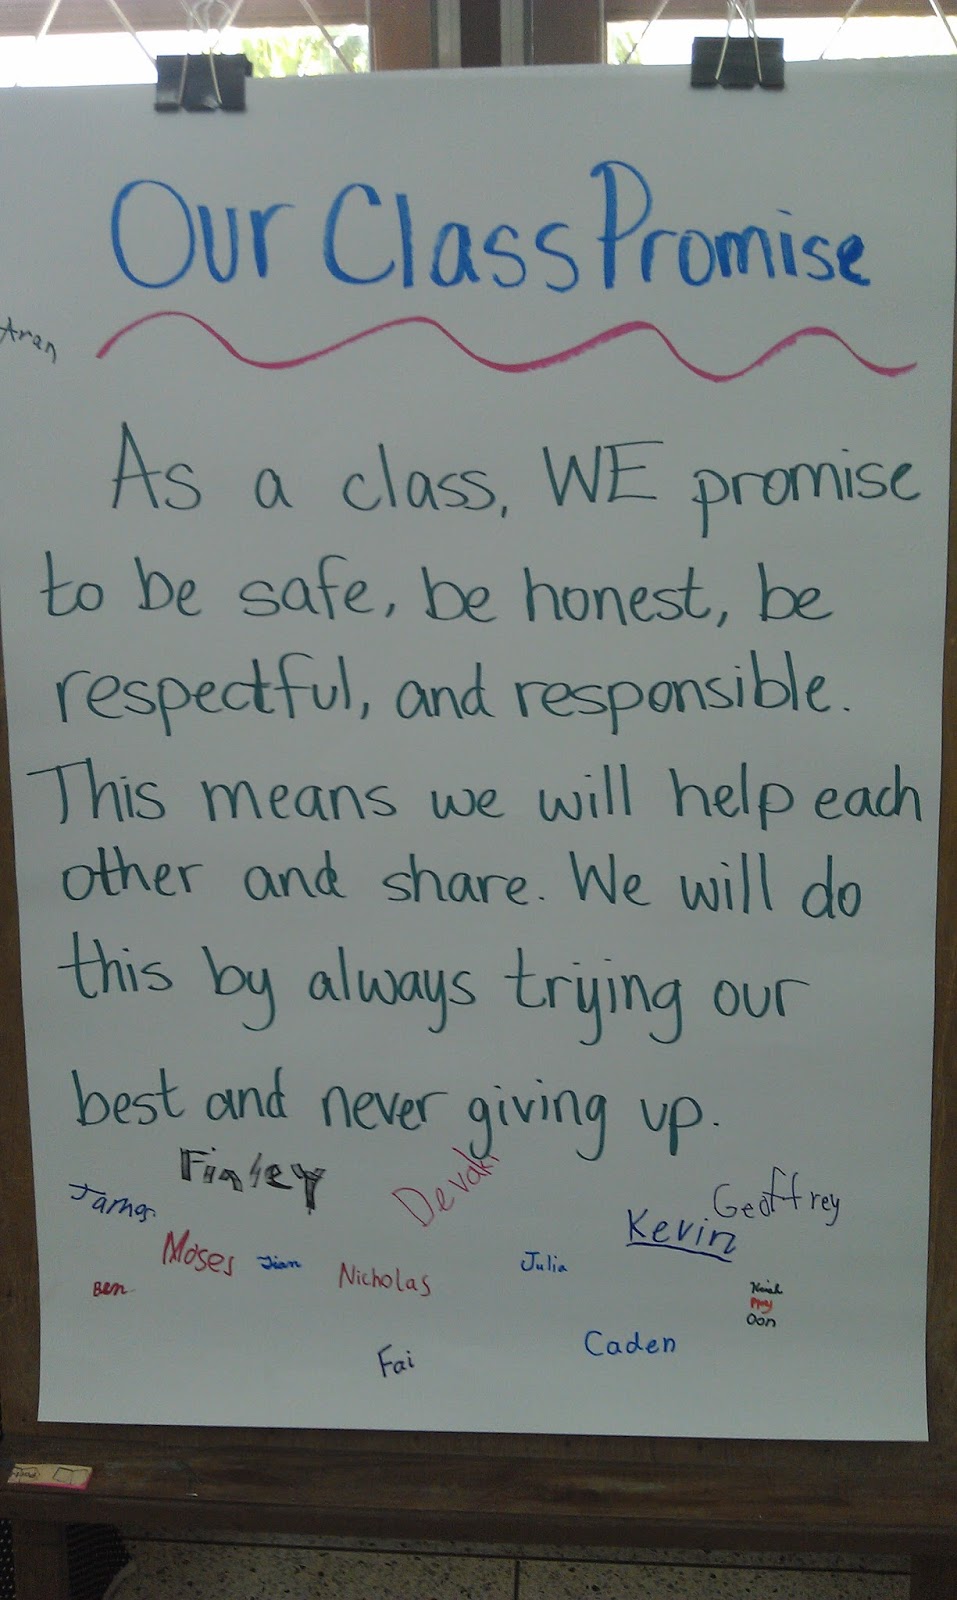 Our Class Promise
Aran
As a class, WE promise
to be safe, be honest, be
respectful, and responsible.
This means we will help each
other and share. We will do
this by always trying our
best and never giving up.
Finley
Devaki
James
Geoffrey
Kevin
Moses
Jian
Nicholas
Julia
Ben
Oon
Caden
Fai